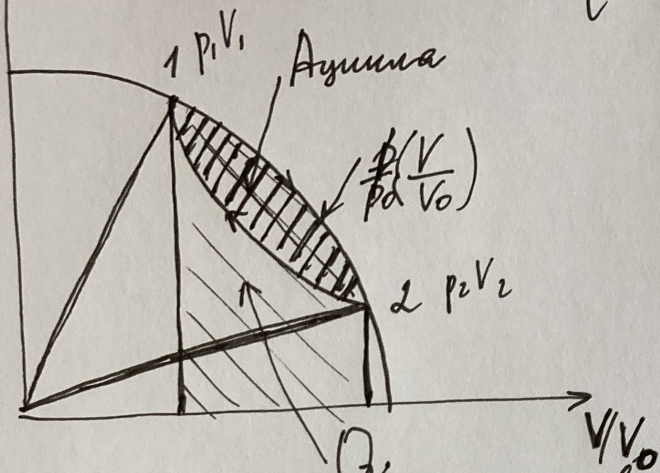 1 p₁V₁
Aцикла
p/p₀(V/V₀)
2 p₂V₂
V/V₀
Q